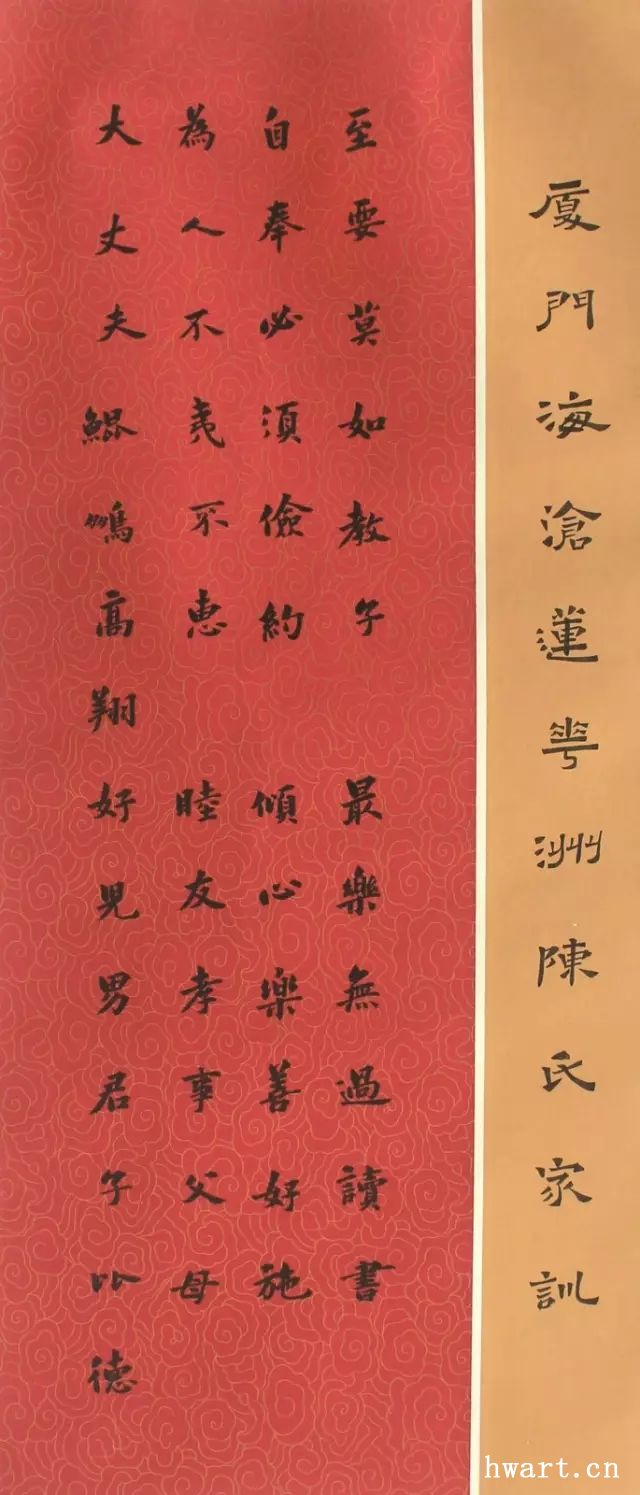 厦門海滄蓮華洲陳氏家訓
至要莫如教子 最樂無過讀書
自奉必須儉約 傾心樂善好施
為人不夷不惠 睦友孝事父母
大丈夫鯤鵬高翔好兒男君子以德
hwart.cn